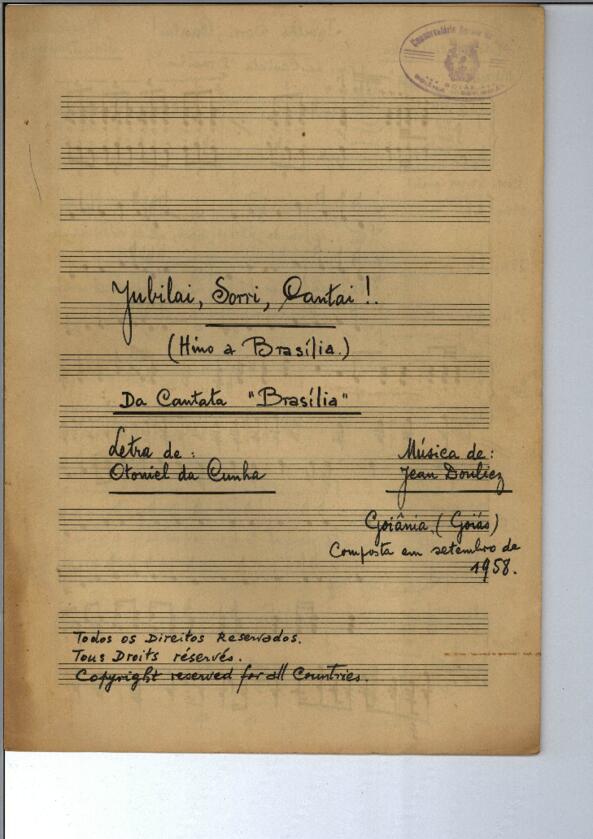 Jubilai, Sorri, Cantai!.
(Hino a Brasília.)
Da Cantata "Brasília"
Letra de:
Otoniel da Cunha
Música de:
Jean Douliez
Goiânia (Goiás)
Composta em setembro de
1958.
Todos os Direitos Reservados.
Tous Droits réservés.
Copyright reserved for all Countries.